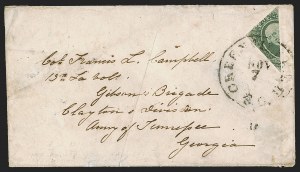 Col Francis L. Campbell
13th La vols
Gibson's Brigade
Clayton's Division
Army of Tennessee
Georgia
GREEN
NOV
7